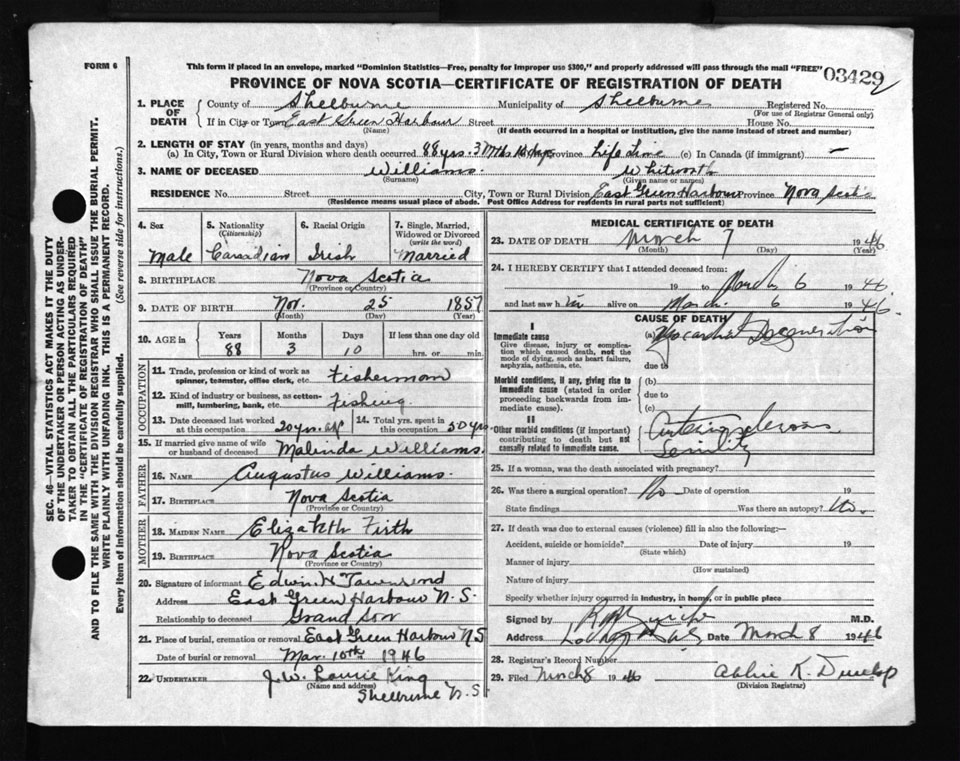 FORM 6
This form if placed in an envelope, marked "Dominion Statistics—Free, penalty for improper use $300," and properly addressed will pass through the mail "FREE"
03429
PROVINCE OF NOVA SCOTIA—CERTIFICATE OF REGISTRATION OF DEATH
1. PLACE OF DEATH County of Shelburne Municipality of Shelburne Registered No.
(For use of Registrar General only)
If in City or Town East Green Harbour Street House No.
(Name) (If death occurred in a hospital or institution, give the name instead of street and number)
2. LENGTH OF STAY (in years, months and days)
(a) In City, Town or Rural Division where death occurred 88 yrs. 3 Mths 10 days Province Life Time (c) In Canada (if immigrant) —
3. NAME OF DECEASED Williams. Whitworth
(Surname) (Given name or names)
RESIDENCE No. Street City, Town or Rural Division East Green Harbour Province Nova Scotia
(Residence means usual place of abode. Post Office Address for residents in rural parts not sufficient)
4. Sex 5. Nationality 6. Racial Origin 7. Single, Married,
(Citizenship) Widowed or Divorced
(write the word)
Male Canadian Irish Married
8. BIRTHPLACE Nova Scotia
(Province or Country)
9. DATE OF BIRTH Nov. 25 1857
(Month) (Day) (Year)
10. AGE in Years Months Days If less than one day old
88 3 10 hrs. or min.
OCCUPATION
11. Trade, profession or kind of work as Fisherman
spinner, teamster, office clerk, etc
12. Kind of industry or business, as cotton- Fishing
mill, lumbering, bank, etc.
13. Date deceased last worked 14. Total yrs. spent in
at this occupation 20 yrs. this occupation 50 yrs
15. If married give name of wife
or husband of deceased Malinda Williams.
FATHER
16. NAME Augustus Williams
17. BIRTHPLACE Nova Scotia
(Province or Country)
MOTHER
18. MAIDEN NAME Elizabeth Firth
19. BIRTHPLACE Nova Scotia
(Province or Country)
20. Signature of informant Edwin H Townsend
Address East Green Harbour N.S.
Relationship to deceased Grand Son
21. Place of burial, cremation or removal East Green Harbour N.S
Date of burial or removal Mar. 10th 1946
22. UNDERTAKER J.W. Laurie King
(Name and address)
Shelburne N.S
MEDICAL CERTIFICATE OF DEATH
23. DATE OF DEATH March 7 1946
(Month) (Day) (Year)
24. I HEREBY CERTIFY that I attended deceased from:
19 to March 6 1946
and last saw h im alive on March. 6 1946.
CAUSE OF DEATH
I
Immediate cause
Give disease, injury or complication which caused death, not the mode of dying, such as heart failure, asphyxia, asthenia, etc.
(a) Myocardial Degeneration
due to
Morbid conditions, if any, giving rise to immediate cause (stated in order proceeding backwards from immediate cause).
(b)
due to
(c)
II
Other morbid conditions (if important) contributing to death but not causally related to immediate cause.
Arteriosclerosis
Senility
25. If a woman, was the death associated with pregnancy?
26. Was there a surgical operation? No Date of operation 19
State findings Was there an autopsy? No.
27. If death was due to external causes (violence) fill in also the following:—
Accident, suicide or homicide? Date of injury 19
(State which)
Manner of injury
(How sustained)
Nature of injury
Specify whether injury occurred in industry, in home, or in public place
Signed by M.D.
Address Date March 8 1946
28. Registrar's Record Number
29. Filed March 8 1946 Abbie K. Dunlop
(Division Registrar)
SEC. 46—VITAL STATISTICS ACT MAKES IT THE DUTY
OF THE UNDERTAKER OR PERSON ACTING AS UNDER-
TAKER TO OBTAIN ALL THE PARTICULARS REQUIRED
IN THE "CERTIFICATE OF REGISTRATION OF DEATH"
AND TO FILE THE SAME WITH THE DIVISION REGISTRAR WHO SHALL ISSUE THE BURIAL PERMIT.
WRITE PLAINLY WITH UNFADING INK. THIS IS A PERMANENT RECORD.
Every item of information should be carefully supplied. (See reverse side for instructions.)